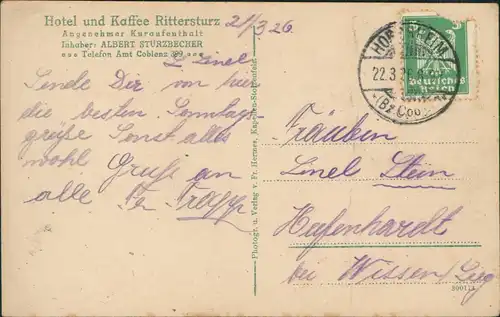 Hotel und Kaffee Rittersturz
Angenehmer Kuraufenthalt
Inhaber: ALBERT STÜRZBECHER
Telefon Amt Coblenz 399
21/3.26.
L Linel
Sende Dir von hier
die besten Sonntags
grüße Sonst alles
wohl Gruß an
alle
Photogr. u. Verlag v. Fr. Herner, Kapellen-Stolzenfels
22.3.
Deutsches
Reich
Fräulein
Linel Stein
Hufenhardt
bei Wissen/Sieg